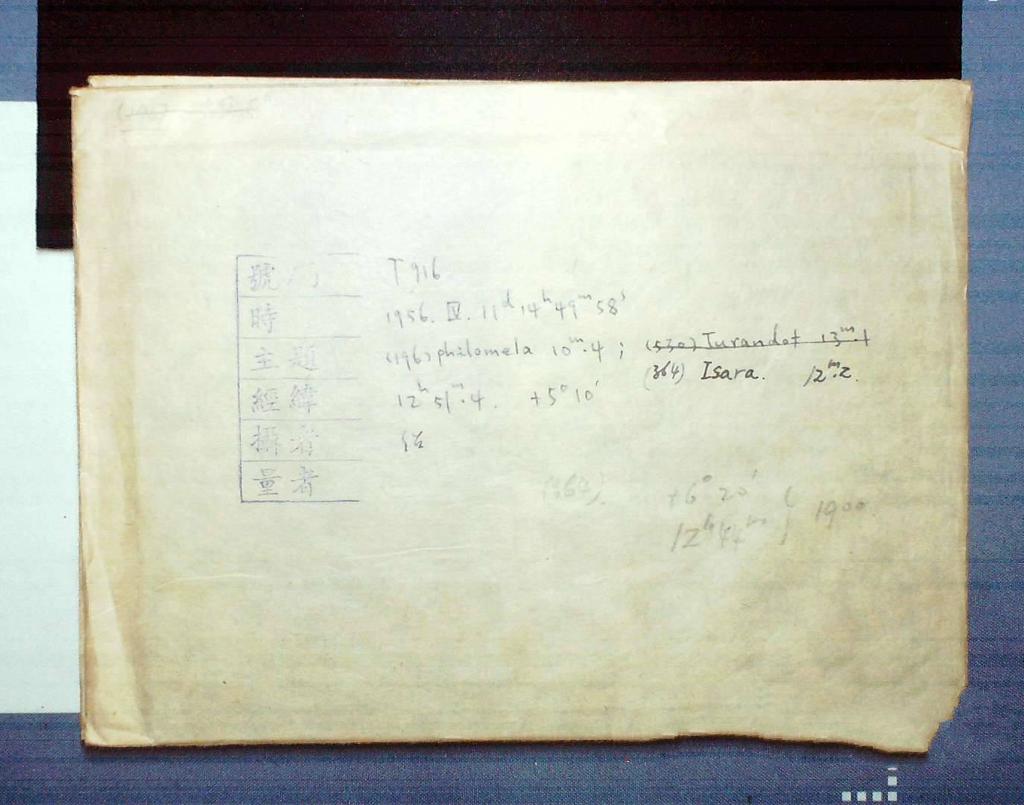 號
T 916
時
1956. IV. 11ᵈ 14ʰ 49ᵐ 58ˢ
主題
(196) philomela 10ᵐ.4 ; (530) Turandot 13ᵐ.1
(364) Isara. 12ᵐ.2.
經緯
12ʰ 51ᵐ.4. +5° 10'
攝者
量者
(364). +6° 20'
12ʰ 44ᵐ } 1900